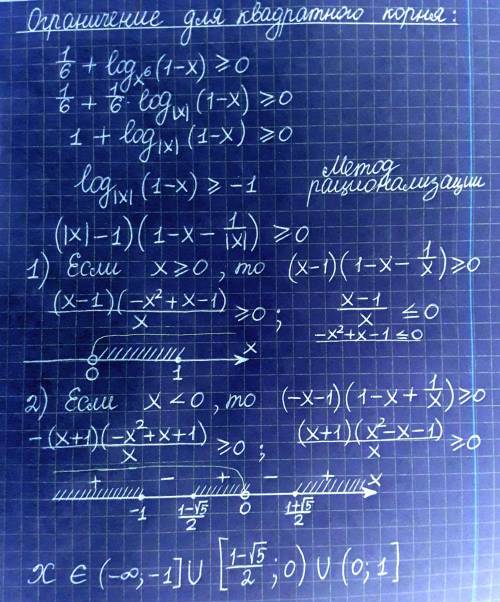 Ограничение для квадратного корня:
1/6 + log_{x^6}(1-x) ≥ 0
1/6 + 1/6 · log_{|x|}(1-x) ≥ 0
1 + log_{|x|}(1-x) ≥ 0
log_{|x|}(1-x) ≥ -1 Метод рационализации
(|x|-1)(1-x-1/|x|) ≥ 0
1) Если x ≥ 0, то (x-1)(1-x-1/x) ≥ 0
(x-1)(-x²+x-1)/x ≥ 0; (x-1)/x ≤ 0
-x²+x-1 ≤ 0
0 1 x
2) Если x < 0, то (-x-1)(1-x+1/x) ≥ 0
-(x+1)(-x²+x+1)/x ≥ 0; (x+1)(x²-x-1)/x ≥ 0
+ - + - + x
-1 (1-√5)/2 0 (1+√5)/2
x ∈ (-∞; -1] ∪ [(1-√5)/2; 0) ∪ (0; 1]